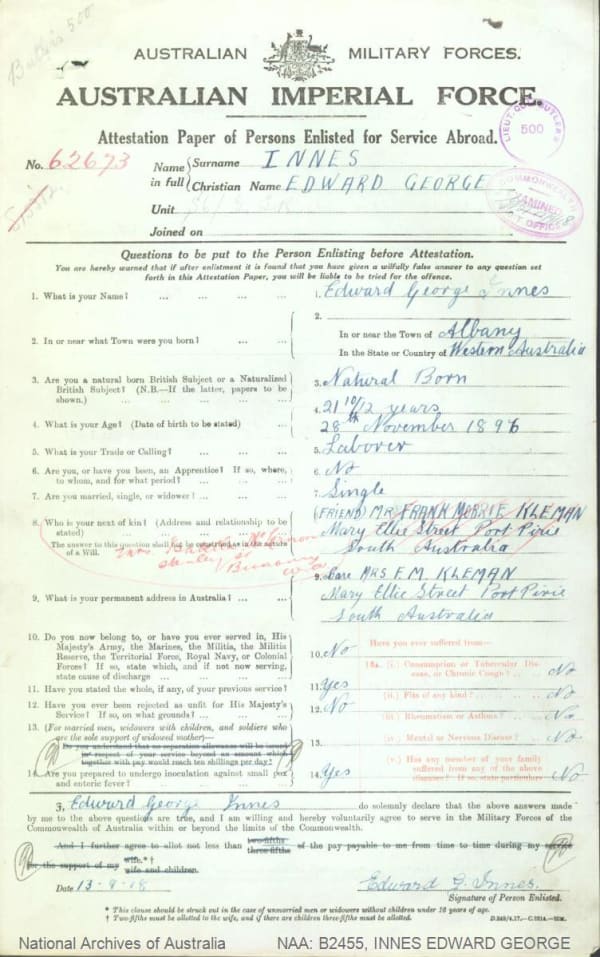 Butlers 500
AUSTRALIAN MILITARY FORCES.
AUSTRALIAN IMPERIAL FORCE.
Attestation Paper of Persons Enlisted for Service Abroad.
500
No. 62673
Name in full
Surname INNES
Christian Name EDWARD GEORGE
COMMONWEALTH
EXAMINED
Unit
Joined on
Questions to be put to the Person Enlisting before Attestation.
You are hereby warned that if after enlistment it is found that you have given a wilfully false answer to any question set
forth in this Attestation Paper, you will be liable to be tried for the offence.
1. What is your Name? ... ... ... ... 1. Edward George Innes
2. In or near what Town were you born? ... ... 2. In or near the Town of Albany
In the State or Country of Western Australia
3. Are you a natural born British Subject or a Naturalized
British Subject? (N.B.—If the latter, papers to be
shown.) ... ... ... ... 3. Natural Born
4. What is your Age? (Date of birth to be stated) ... 4. 21 10/12 years
28th November 1896
5. What is your Trade or Calling? ... ... ... 5. Laborer
6. Are you, or have you been, an Apprentice? If so, where,
to whom, and for what period? ... ... ... 6. No
7. Are you married, single, or widower? ... ... 7. Single
8. Who is your next of kin? (Address and relationship to be
stated) ... ... ... ... 8. (FRIEND) MR. FRANK MERRIE KLEMAN
Mary Ellie Street Port Pirie
South Australia
The answer to this question shall not be construed as in the nature
of a Will.
Stanley St
Bunbury
WA
9. What is your permanent address in Australia? ... ... 9. Care MRS F. M. KLEMAN
Mary Ellie Street Port Pirie
South Australia
10. Do you now belong to, or have you ever served in, His
Majesty's Army, the Marines, the Militia, the Militia
Reserve, the Territorial Force, Royal Navy, or Colonial
Forces? If so, state which, and if not now serving,
state cause of discharge ... ... ... ... 10. No
11. Have you stated the whole, if any, of your previous service? 11. Yes
12. Have you ever been rejected as unfit for His Majesty's
Service? If so, on what grounds? ... ... ... 12. No
13. (For married men, widowers with children, and soldiers who
are the sole support of widowed mother)—
Do you understand that no separation allowance will be issued
in respect of your service beyond an amount which
together with pay would reach ten shillings per day? 13.
14. Are you prepared to undergo inoculation against small pox
and enteric fever? ... ... ... ... 14. Yes
Have you ever suffered from—
10a. (i.) Consumption or Tubercular Dis-
ease, or Chronic Cough? .. .. No
(ii.) Fits of any kind? .. .. No
(iii.) Rheumatism or Asthma? .. No
(iv.) Mental or Nervous Disease? .. No
(v.) Has any member of your family
suffered from any of the above
diseases? If so, state particulars No
I, Edward George Innes do solemnly declare that the above answers made
by me to the above questions are true, and I am willing and hereby voluntarily agree to serve in the Military Forces of the
Commonwealth of Australia within or beyond the limits of the Commonwealth.
And I further agree to allot not less than two-fifths three-fifths of the pay payable to me from time to time during my service
for the support of my wife.*†
wife and children.
Date 13-9-18
Edward G. Innes.
Signature of Person Enlisted.
* This clause should be struck out in the case of unmarried men or widowers without children under 16 years of age.
† Two-fifths must be allotted to the wife, and if there are children three-fifths must be allotted.
National Archives of Australia
NAA: B2455, INNES EDWARD GEORGE